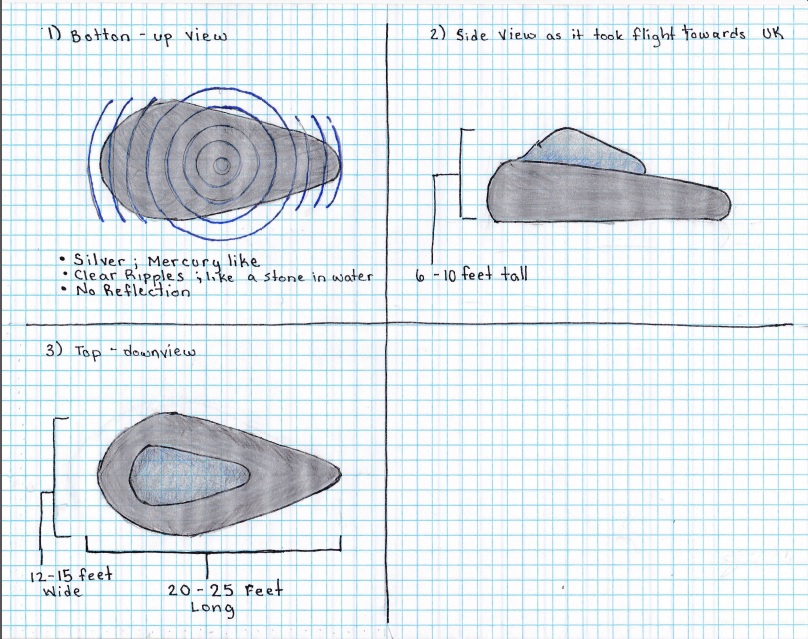 1) Botton - up view
• Silver ; Mercury like
• Clear Ripples ; like a stone in water
• No Reflection
2) Side View as it took flight towards UK
6 -10 feet tall
3) Top - downview
12-15 feet
Wide
20 - 25 Feet
Long